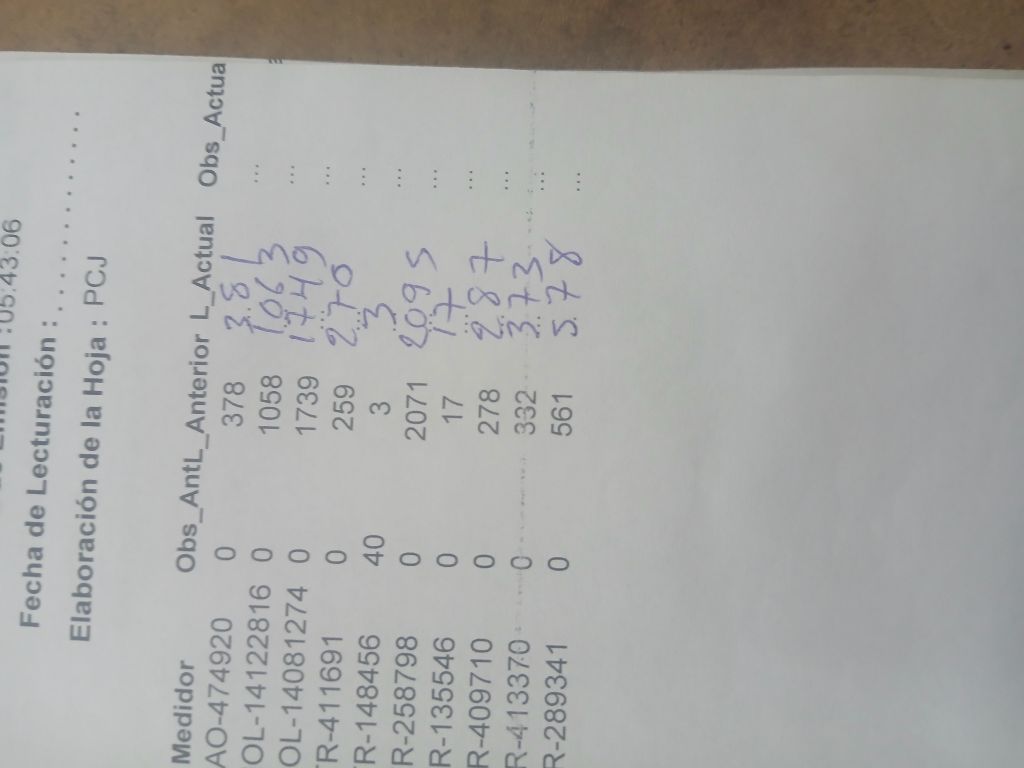 :05:43:06
Fecha de Lecturación : . . . . . . . . . . . . . . .
Elaboración de la Hoja : PCJ
Medidor Obs_AntL_Anterior L_Actual Obs_Actua
AO-474920 0 378 381 ...
OL-141122816 0 1058 1063 ...
OL-14081274 0 1739 1749 ...
TR-411691 0 259 270 ...
TR-148456 40 3 3 ...
R-258798 0 2071 2095 ...
R-135546 0 17 17 ...
R-409710 0 278 287 ...
R-413370 0 332 373 ...
R-289341 0 561 578 ...